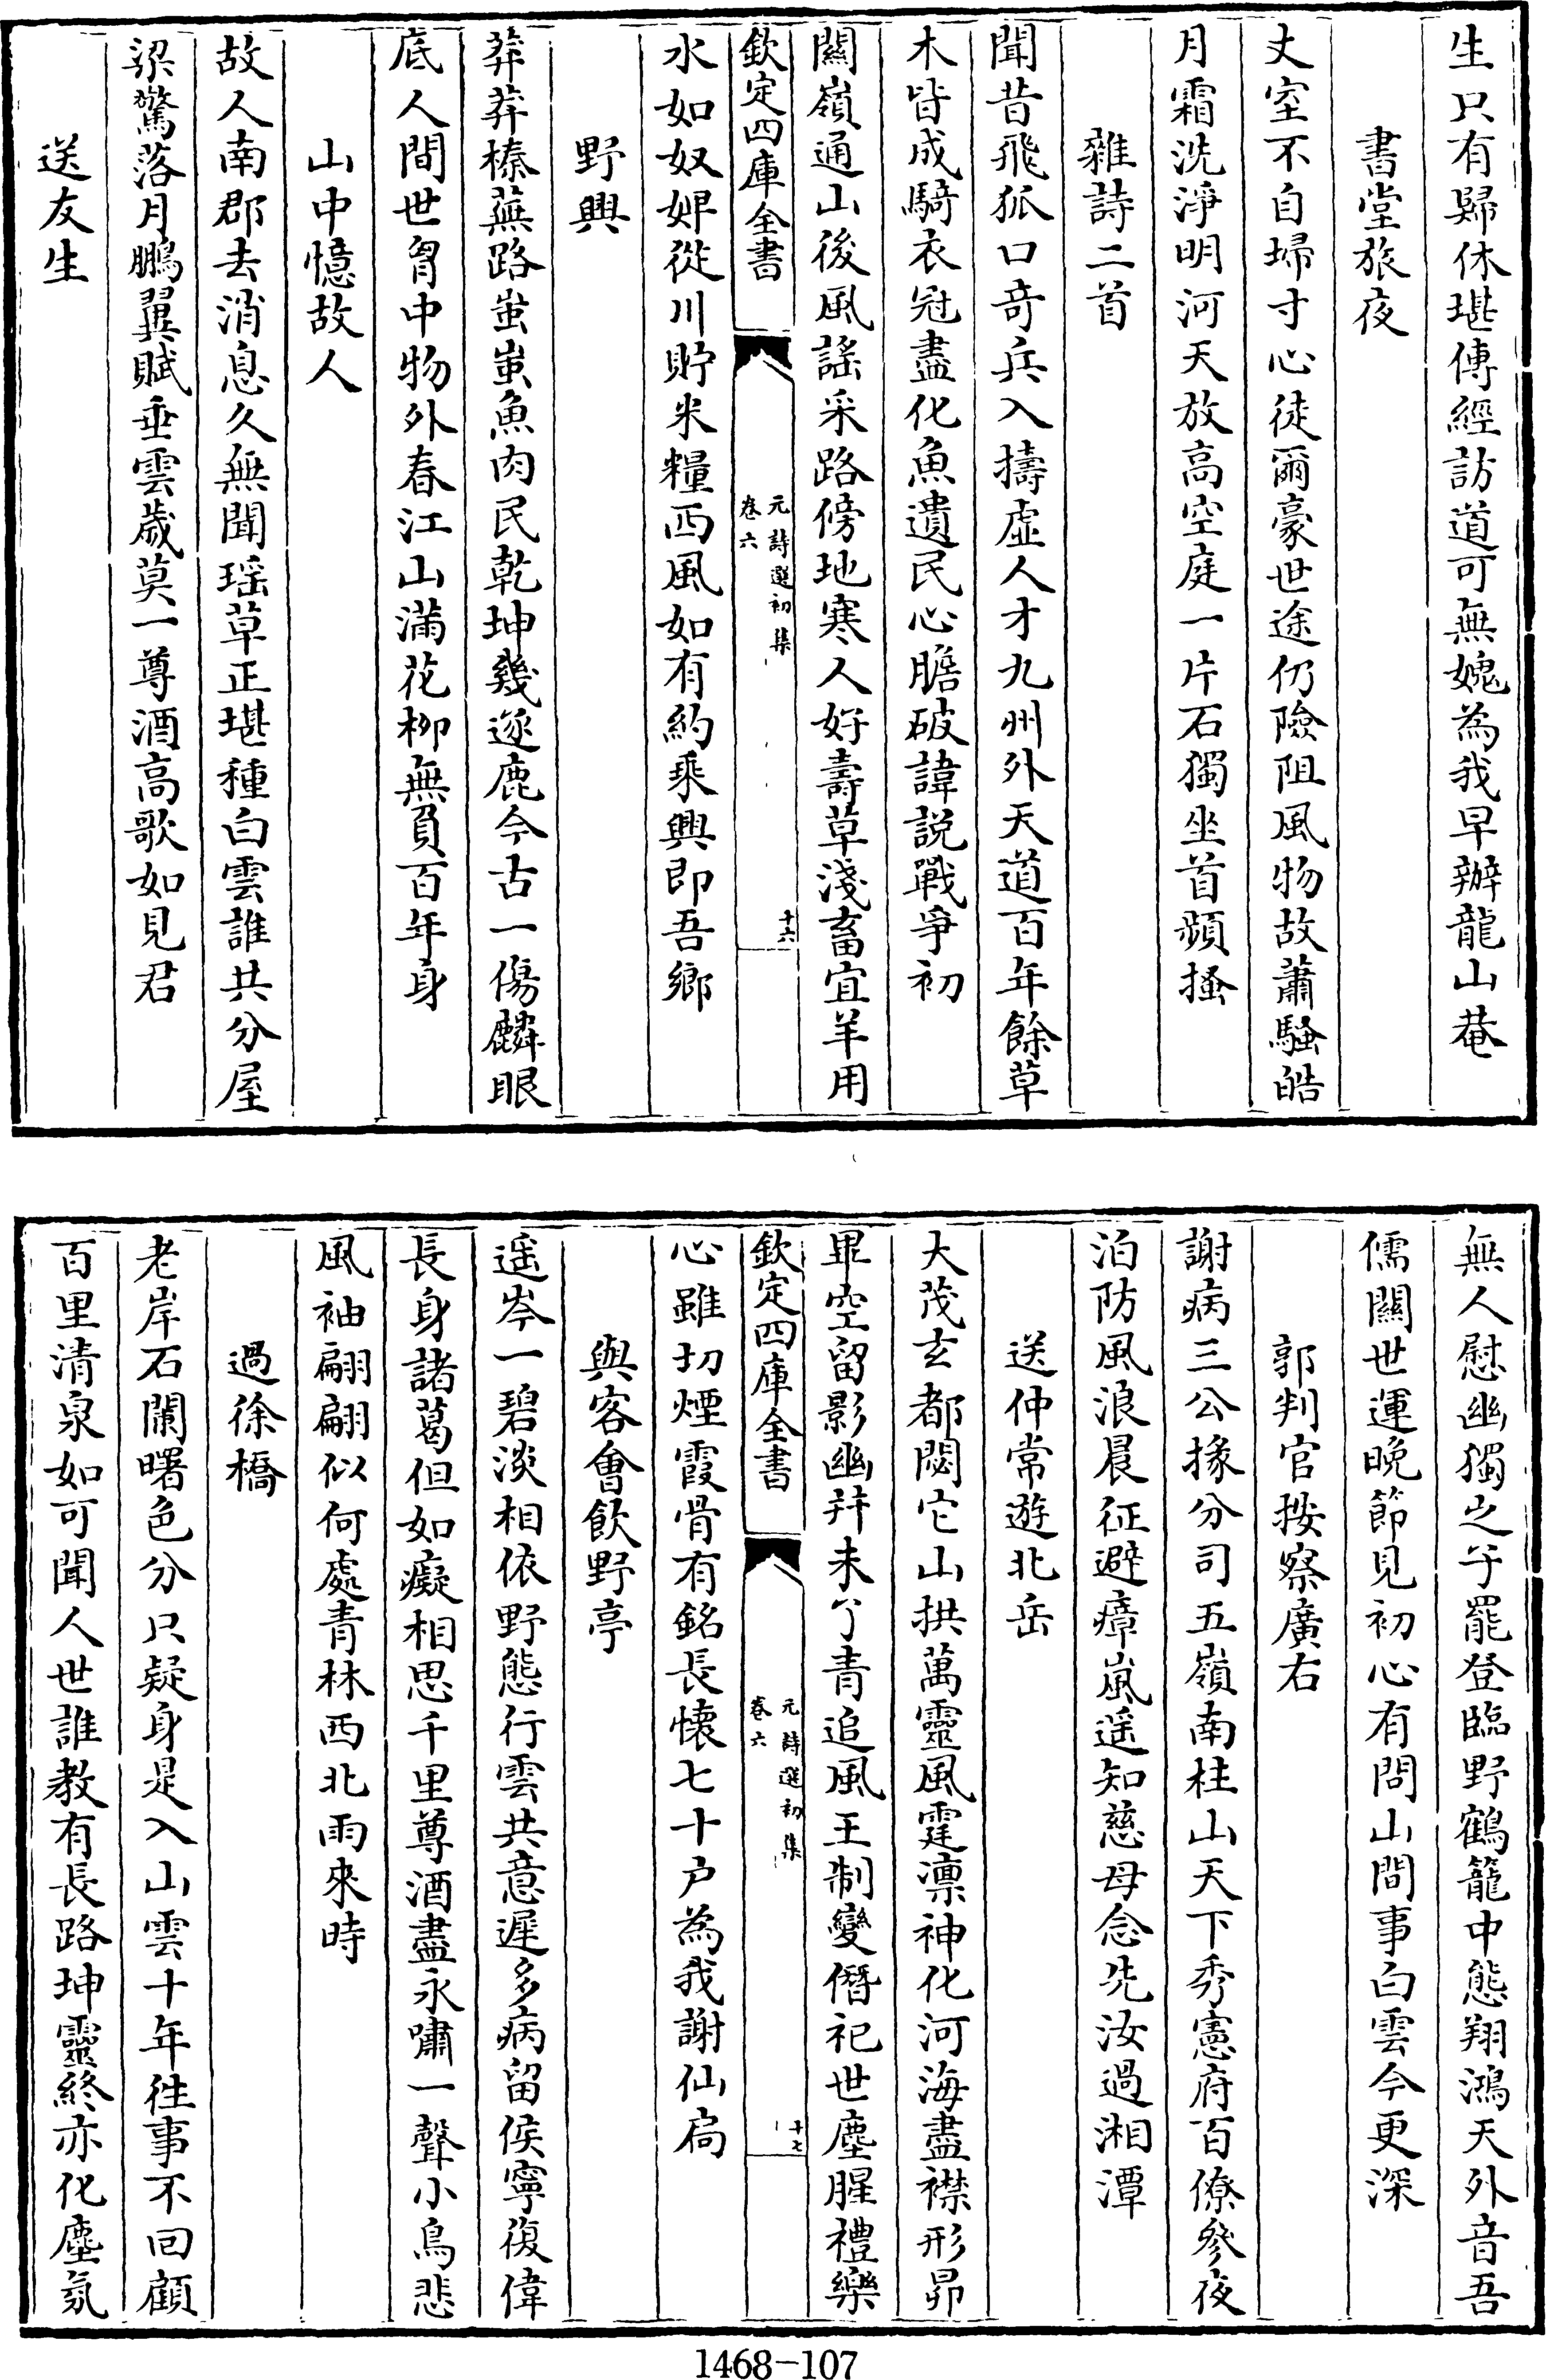 生只有歸休堪傳經訪道可無媿為我早辦龍山菴
書堂旅夜
丈室不自埽寸心徒爾豪世途仍險阻風物故蕭騷皓
月霜洗淨明河天放高空庭一片石獨坐首頻搔
雜詩二首
聞昔飛狐口奇兵入擣虛人才九州外天道百年餘草
木皆成騎衣冠盡化魚遺民心膽破諱説戰爭初
關嶺通山後風謡采路傍地寒人好壽草淺畜宜羊用
欽定四庫全書
元詩選初集
卷六
十六
水如奴婢從川貯米糧西風如有約乘興即吾鄉
野興
莽莽榛蕪路蚩蚩魚肉民乾坤幾逐鹿今古一傷麟眼
底人間世胷中物外春江山滿花柳無負百年身
山中憶故人
故人南郡去消息久無聞瑶草正堪種白雲誰共分屋
梁驚落月鵬翼賦垂雲歲莫一尊酒高歌如見君
送友生
無人慰幽獨之子罷登臨野鶴籠中態翔鴻天外音吾
儒關世運晚節見初心有問山間事白雲今更深
郭判官按察廣右
謝病三公掾分司五嶺南桂山天下秀憲府百僚參夜
泊防風浪晨征避瘴嵐遥知慈母念先汝過湘潭
送仲常遊北岳
大茂玄都閟它山拱萬靈風霆凜神化河海盡襟形昴
畢空留影幽并未了青追風王制變僭祀世塵腥禮樂
欽定四庫全書
元詩選初集
卷六
十七
心雖切煙霞骨有銘長懷七十户為我謝仙扃
與客會飲野亭
遥岑一碧淡相依野態行雲共意遲多病留侯寧復偉
長身諸葛但如癡相思千里尊酒盡永嘯一聲小鳥悲
風袖翩翩似何處青林西北雨來時
過徐橋
老岸石闌曙色分只疑身是入山雲十年徃事不回顧
百里清泉如可聞人世誰教有長路坤靈終亦化塵氛
1468-107